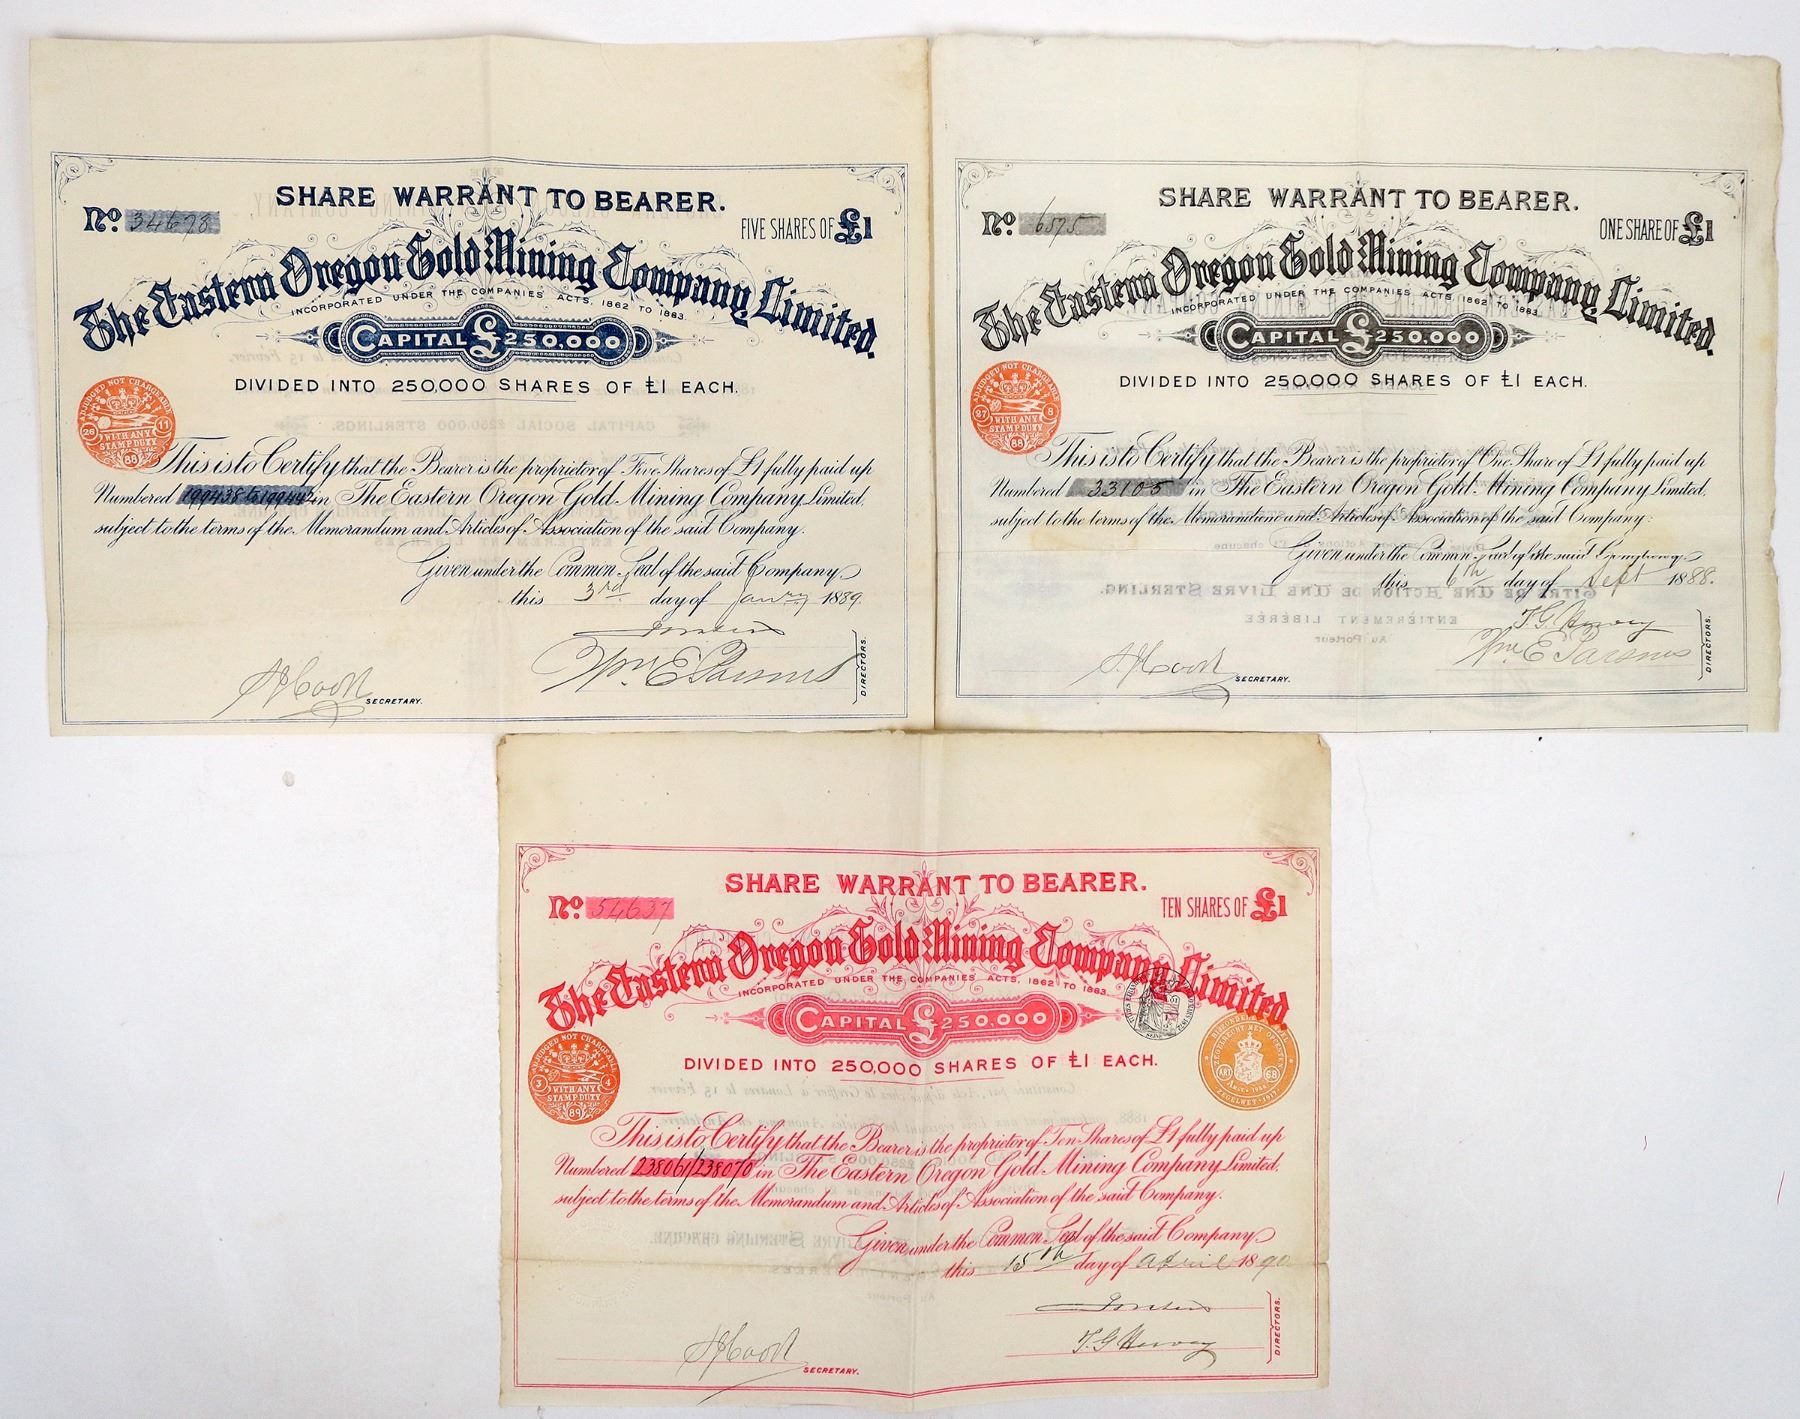 SHARE WARRANT TO BEARER.
No. 34678
FIVE SHARES OF £1
The Eastern Oregon Gold Mining Company Limited.
INCORPORATED UNDER THE COMPANIES ACTS, 1862 TO 1883.
CAPITAL £250,000
DIVIDED INTO 250,000 SHARES OF £1 EACH.
ADJUDGED NOT CHARGEABLE
26 11
WITH ANY
STAMP DUTY
88
This is to Certify that the Bearer is the proprietor of Five Shares of £1 fully paid up
Numbered 199438 to 199442 in The Eastern Oregon Gold Mining Company Limited,
subject to the terms of the Memorandum and Articles of Association of the said Company.
Given under the Common Seal of the said Company
this 3rd day of Janry 1889.
Wm. E. Parsons
DIRECTORS.
SECRETARY.
SHARE WARRANT TO BEARER.
No. 6575
ONE SHARE OF £1
The Eastern Oregon Gold Mining Company Limited.
INCORPORATED UNDER THE COMPANIES ACTS, 1862 TO 1883.
CAPITAL £250,000
DIVIDED INTO 250,000 SHARES OF £1 EACH.
ADJUDGED NOT CHARGEABLE
27 8
WITH ANY
STAMP DUTY
88
This is to Certify that the Bearer is the proprietor of One Share of £1 fully paid up
Numbered 33105 in The Eastern Oregon Gold Mining Company Limited,
subject to the terms of the Memorandum and Articles of Association of the said Company:
Given under the Common Seal of the said Company
this 6th day of Sept 1888.
T. G. Hervey
Wm. E. Parsons
DIRECTORS.
SECRETARY.
SHARE WARRANT TO BEARER.
No. 54637
TEN SHARES OF £1
The Eastern Oregon Gold Mining Company Limited.
INCORPORATED UNDER THE COMPANIES ACTS, 1862 TO 1883.
CAPITAL £250,000
DIVIDED INTO 250,000 SHARES OF £1 EACH.
ADJUDGED NOT CHARGEABLE
3 4
WITH ANY
STAMP DUTY
89
ART 68
ZEGELWET 1917
This is to Certify that the Bearer is the proprietor of Ten Shares of £1 fully paid up
Numbered 238061/238070 in The Eastern Oregon Gold Mining Company Limited,
subject to the terms of the Memorandum and Articles of Association of the said Company.
Given under the Common Seal of the said Company
this 15th day of April 1890
T. G. Hervey
DIRECTORS.
SECRETARY.